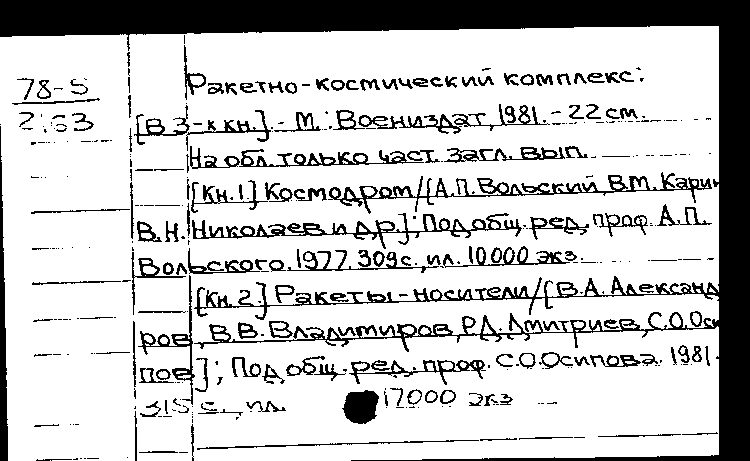 78-5
2163
Ракетно-космический комплекс:
[В 3-к кн.] - М.: Воениздат, 1981. - 22 см.
На обл. только част. загл. вып.
[Кн. 1] Космодром/[А.П. Вольский, В.М. Карин
В.Н. Николаев и др.]; Под общ. ред. проф. А.П.
Вольского. 1977. 309 с., ил. 10000 экз.
[Кн. 2] Ракеты-носители/[В.А. Александ
ров, В.В. Владимиров, Р.Д. Дмитриев, С.О. Оси
пов]; Под общ. ред. проф. С.О. Осипова. 1981.
315 с., ил. 17000 экз